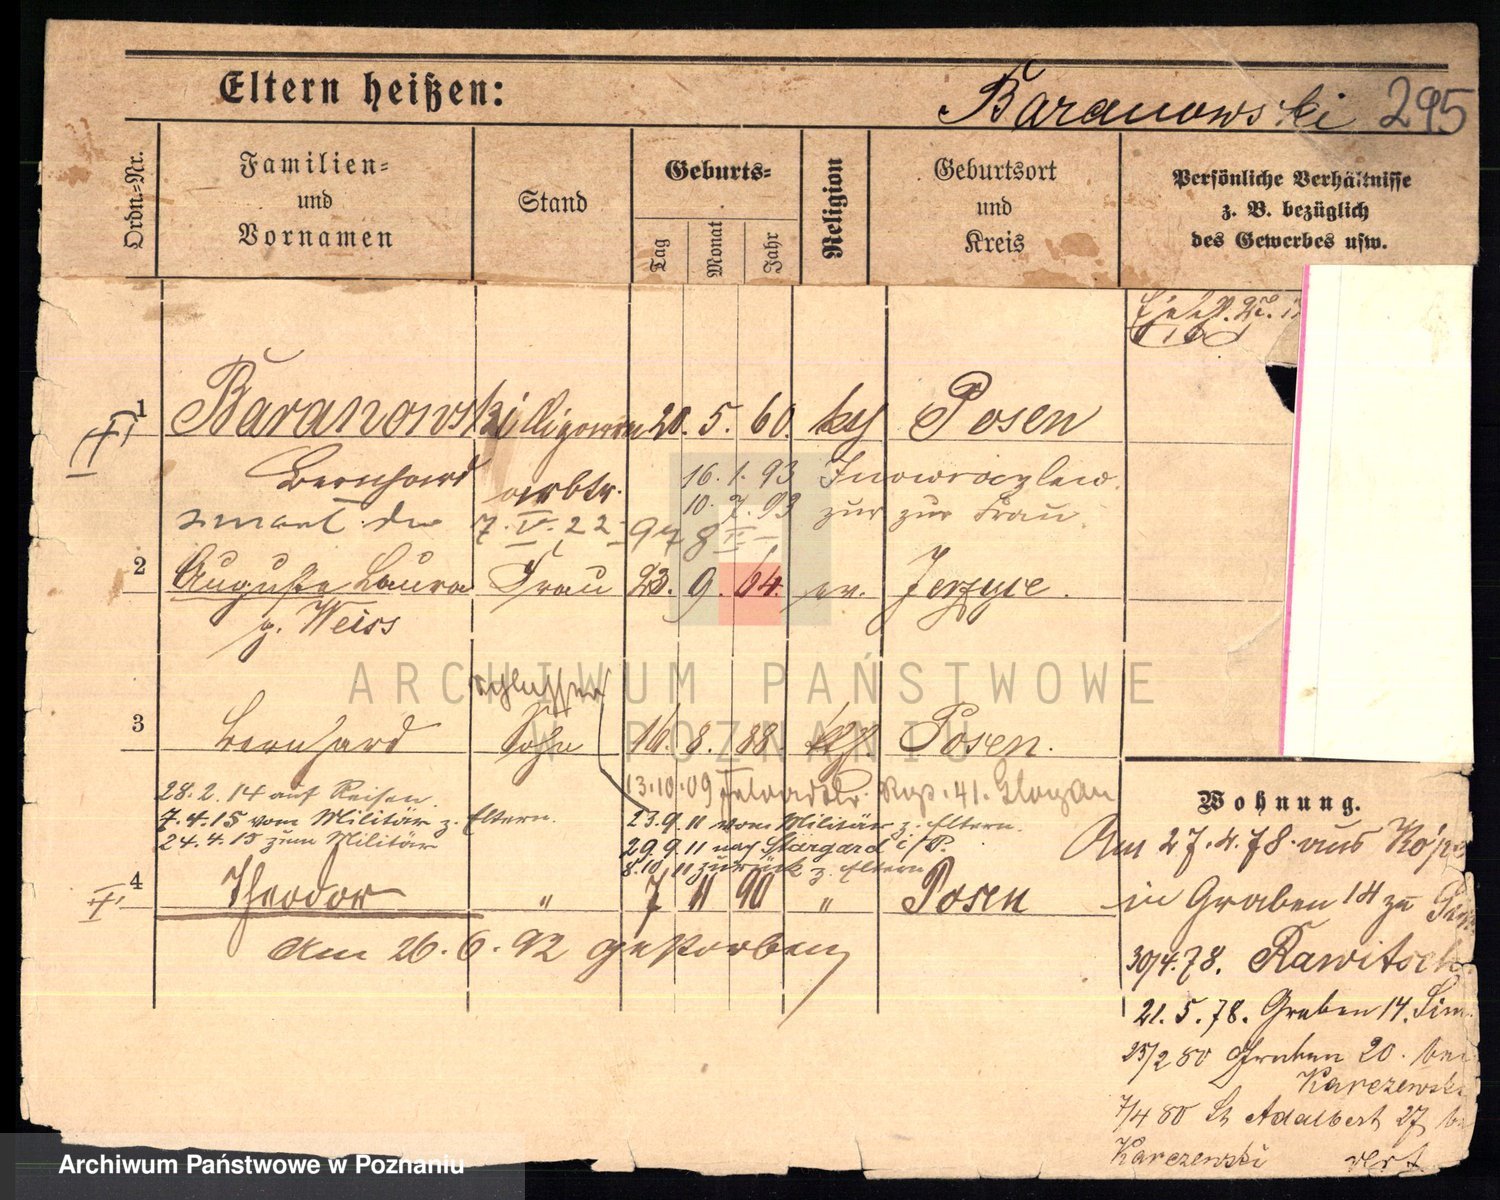 Eltern heißen:
Baranowski 295
Ordn=Nr.
Familien=
und
Vornamen
Stand
Geburts=
Tag
Monat
Jahr
Religion
Geburtsort
und
Kreis
Persönliche Verhältnisse
z. B. bezüglich
des Gewerbes usw.
1 Baranowski 20. 5. 60. kth Posen
Bernhard arbtr. 16. 1. 93 Inowrazlaw.
10. 7. 93 zur zur Frau
7. IV. 22
2 Auguste Laura Frau 23. 9. 64. ev. Jerzyce.
g. Weiss
Schlosser
3 Bernhard Sohn 16. 8. 88 kth. Posen.
13.10.09 Rgt. 41. Glogau
28.2.14 auf Reisen.
7.4.15 vom Militär z. Eltern.
24.4.15 zum Militär
23.9.11 vom Militär z. Eltern.
29.9.11 nach Stargard i/P.
8.10.11 zurück z. Eltern
4 Theodor " 7 11 90 " Posen
Am 26. 6. 92 gestorben
Wohnung.
Am 27.4.78. aus
in Graben 14 zu
30/4.78. Rawitsch
21. 5. 78. Graben 14.
25/2 80 Graben 20. bei
Karczewski
7/4 80 St Adalbert 27
Karczewski vert
ARCHIWUM PAŃSTWOWE
W POZNANIU
Archiwum Państwowe w Poznaniu